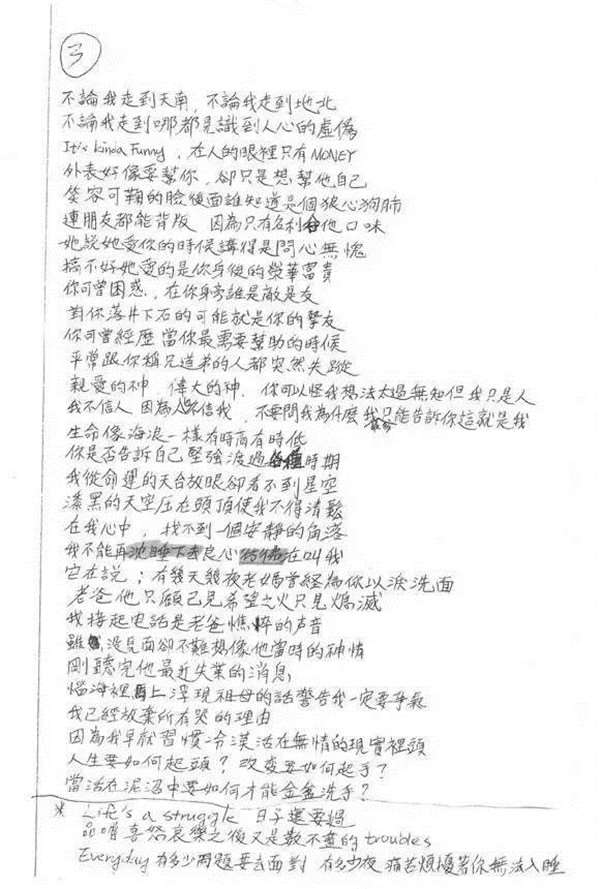 3
不論我走到天南，不論我走到地北
不論我走到哪都見識到人心的虛偽
It's kinda Funny，在人的眼裡只有MONEY
外表好像要幫你，卻只是想幫他自己
笑容可鞠的臉後面誰知道是個狼心狗肺
連朋友都能背版 因為只有名利合他口味
她說她愛你的時候講得是問心無愧
搞不好她愛的是你身後的榮華富貴
你可曾困惑，在你身旁誰是敵是友
對你落井下石的可能就是你的摯友
你可曾經歷當你最需要幫助的時候
平常跟你稱兄道弟的人都突然失蹤
親愛的神，偉大的神，你可以怪我想法太過無知但我只是人
我不信人 因為人不信我，不要問我為什麼 我只能告訴你這就是我
生命像海浪一樣有時高有時低
你是否告訴自己堅強渡過 時期
我從命運的天台放眼卻看不到星空
漆黑的天空压在頭頂使我不得清鬆
在我心中，找不到一個安靜的角落
我不能再沈睡下去良心 在叫我
它在說；有幾天幾夜老媽曾経為你以淚洗面
老爸他只顧己見希望之火只見熄滅
我接起电話是老爸憔悴的声音
雖 沒見面卻不難想像他當時的神情
剛聽完他最近失業的消息
惱海裡馬上浮現祖母的話警告我一定要爭氣
我已經放棄所有哭的理由
因為我早就習慣冷漠活在無情的現實裡頭
人生要如何起頭？改变要如何起手？
當活在泥沼中要如何才能金盆洗手？
* Life's a struggle 日子還要過
品嚐喜怒哀樂之後又是數不盡的troubles
Everyday 有多少問題要去面對 有多少夜 痛苦煩擾著你無法入睡